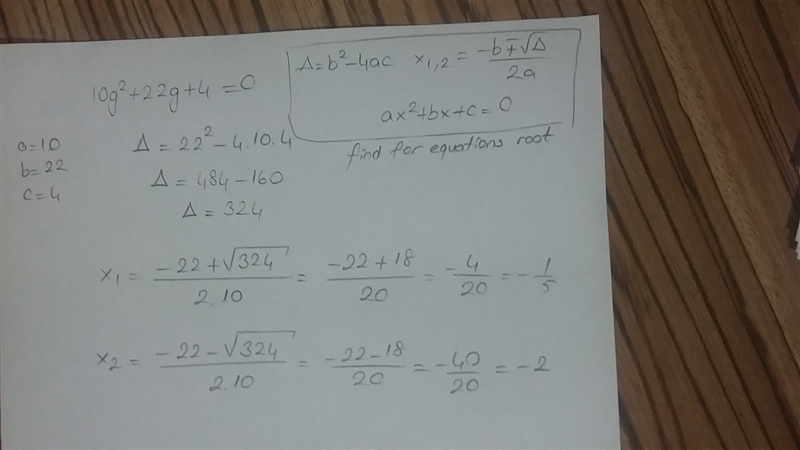 10g²+22g+4=0
Δ=b²-4ac x₁,₂ = (-b∓√Δ)/2a
ax²+bx+c=0
find for equations root
a=10
b=22
c=4
Δ = 22² - 4.10.4
Δ = 484-160
Δ = 324
x₁ = (-22+√324)/2.10 = (-22+18)/20 = -4/20 = -1/5
x₂ = (-22-√324)/2.10 = (-22-18)/20 = -40/20 = -2